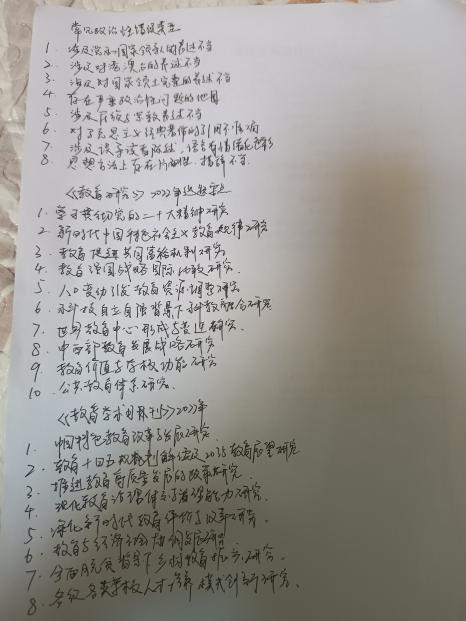 常见政治性错误类型
1. 涉及党和国家领导人的表述不当
2. 涉及对港澳台的表述不当
3. 涉及对国家领土完整的表述不当
4. 存在严重政治性问题的地图
5. 涉及民族与宗教表述不当
6. 对马克思主义经典著作的引用不准确
7. 涉及误导读者陈述，语言有情绪化色彩
8. 思想方法上存在片面性，措辞不当.
《教育研究》2022年选题要点
1. 学习贯彻党的二十大精神研究
2. 新时代中国特色社会主义教育规律研究
3. 教育促进共同富裕机制研究
4. 教育强国战略国际比较研究.
5. 人口变动引发教育资源调整研究
6. 科技自立自强背景下科教融合研究
7. 世界教育中心形成与变迁研究.
8. 中西部教育发展战略研究
9. 教育价值与学校功能研究
10. 公共教育体系研究.
《教育学术月刊》2022年
1. 中国特色教育改革与发展研究.
2. 教育十四五规划解读及2035教育展望研究
3. 推进教育高质量发展的政策研究.
4. 现代教育治理体系与治理能力研究.
5. 深化新时代教育评价改革研究
6. 教育与经济社会协调发展研究
7. 全面脱贫背景下乡村教育振兴研究.
8. 各级各类学校人才培养模式创新研究.